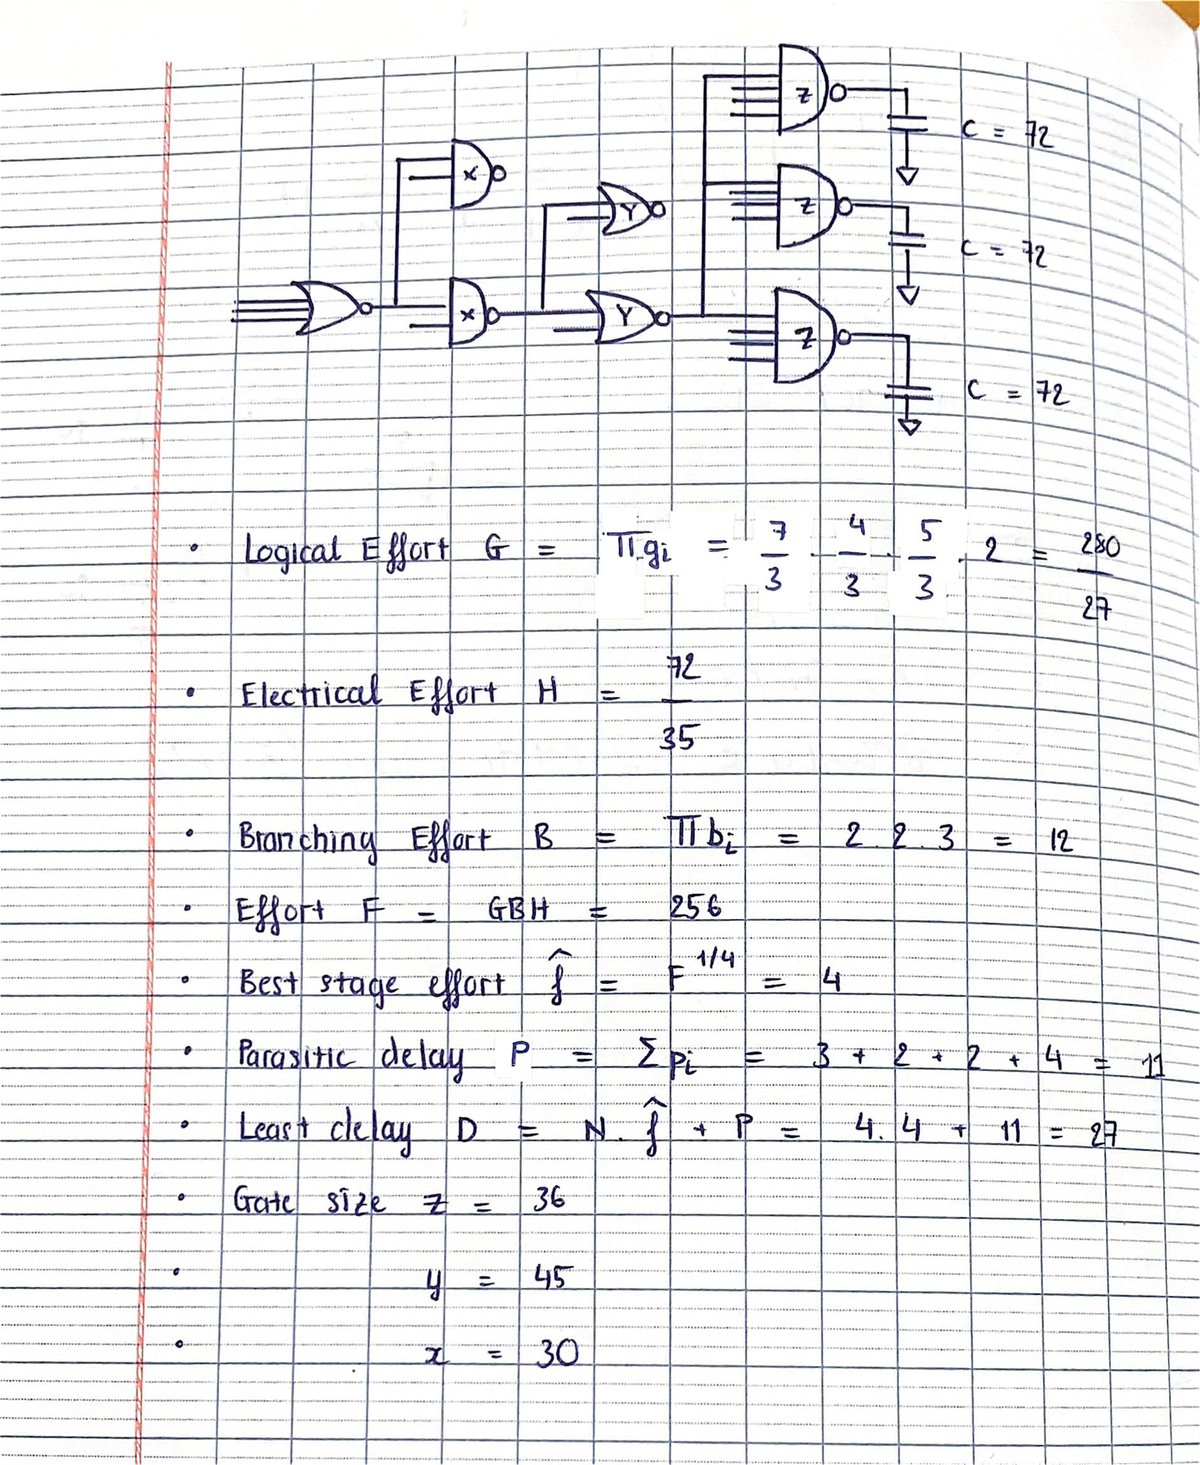 z
C = 72
x
Y
z
C = 72
x
Y
z
C = 72
• Logical Effort G = Πgi = 7/3 . 4/3 . 5/3 . 2 = 280/27
• Electrical Effort H = 72/35
• Branching Effort B = Πbi = 2.2.3 = 12
• Effort F = GBH = 256
• Best stage effort f̂ = F^1/4 = 4
• Parasitic delay P = Σpi = 3 + 2 + 2 + 4 = 11
• Least delay D = N.f̂ + P = 4.4 + 11 = 27
• Gate size z = 36
• y = 45
• x = 30